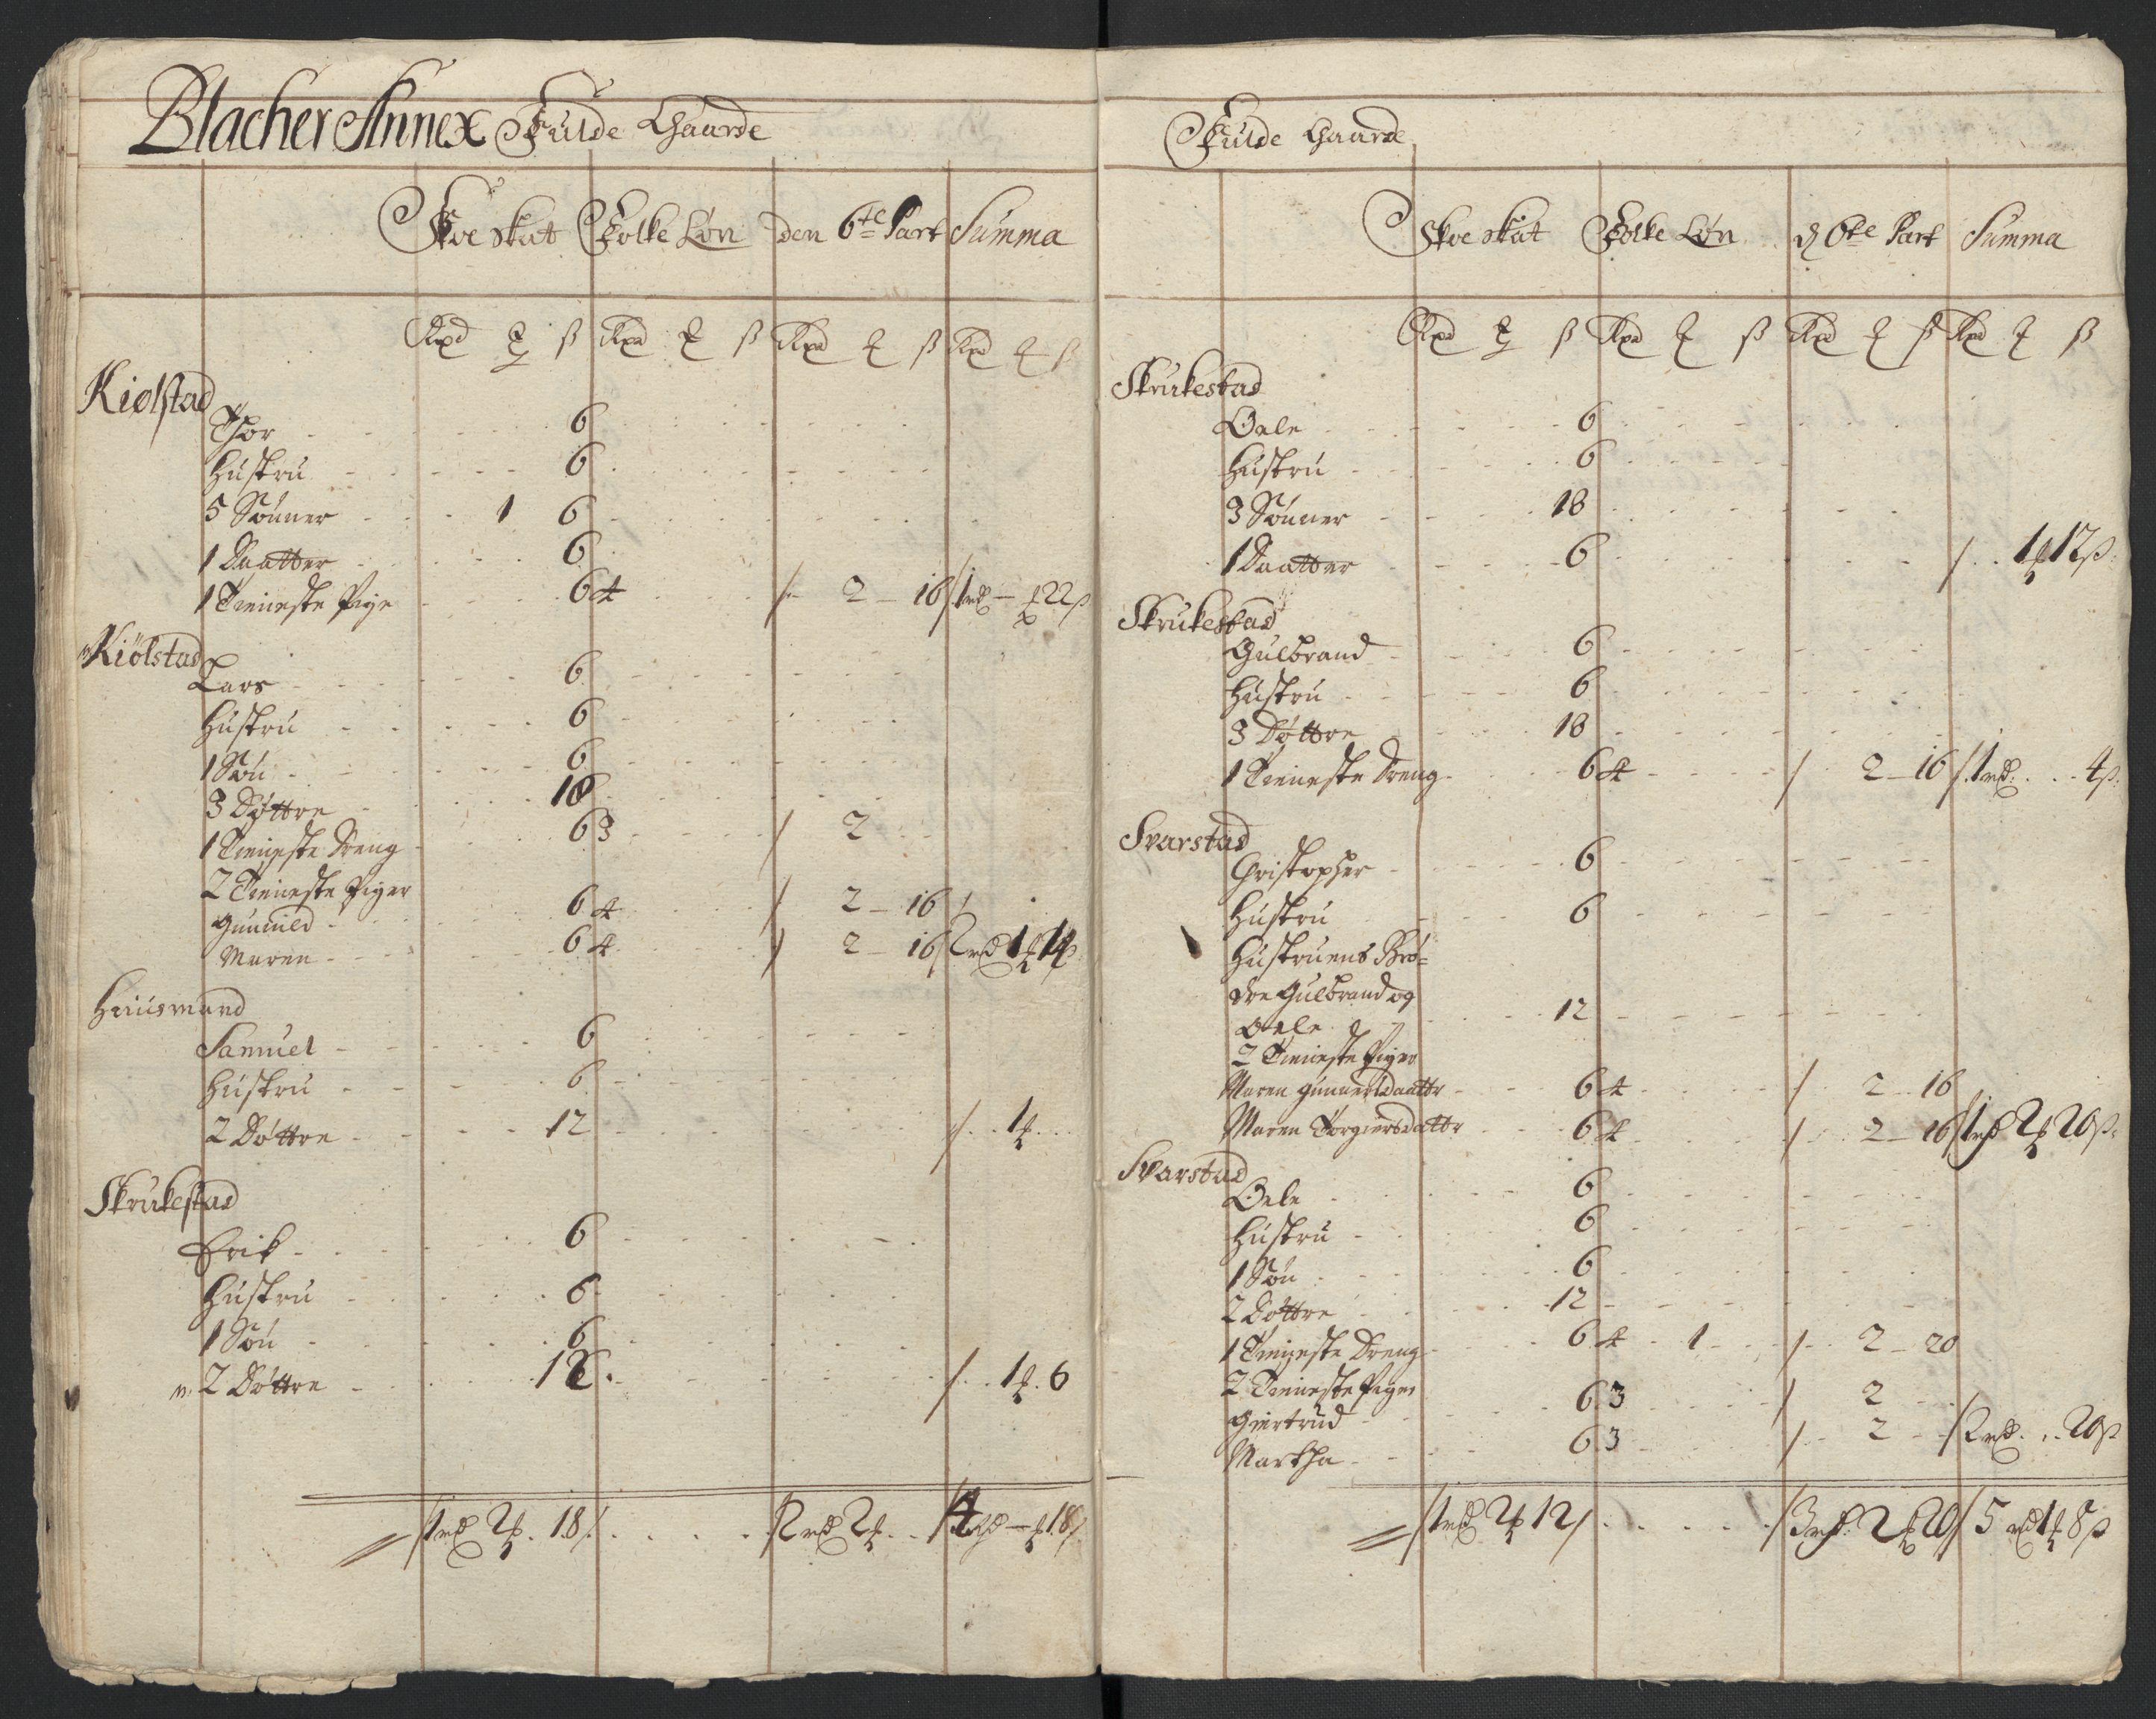 Blacher Annex Fulde Gaarde
Skoe skat Folke Løn den 6te Part Summa
Rxd ß Rxd ß Rxd ß Rxd ß
Kiølstad
Thor 6
Hustru 6
5 Sønner 1 6
1 Daatter 6
1 Tieneste Pige 6 4 2 16 1 rd – 22 ß
Kiölstad
Lars 6
Hustru 6
1 Søn 6
3 Døttre 18
1 Tieneste Dreng 6 3 2
2 Tieneste Piger
Gunnild 6 4 2 – 16
Maren 6 4 2 – 16 2 rd 1 14
Huusmand
Samuel 6
Hustru 6
2 Døttre 12 1
Skrukestad
Erik 6
Hustru 6
1 Søn 6
2 Døttre 12 1 6
1 rd 2 18 2 rd 2 4 rd – 18
Fulde Gaarde
Skoe skat Folke Løn d 6te Part Summa
Rxd ß Rxd ß Rxd ß Rxd ß
Skrukestad
Oele 6
Hustru 6
3 Sønner 18
1 Daatter 6 1 12 ß
Skrukestad
Gulbrand 6
Hustru 6
3 Døttre 18
1 Tieneste Dreng 6 4 2 – 16 1 rd 4 ß
Svarstad
Christopher 6
Hustru 6
Hustruens Brø=
dre Gulbrand og
Oele 12
2 Tieneste Piger
Maren Gunnersdaattr 6 4 2 16
Maren Torgiersdattr 6 4 2 – 16 1 rd 2 20 ß
Svarstad
Oele 6
Hustru 6
1 Søn 6
2 Døttre 12
1 Tieneste Dreng 6 4 1 2 – 20
2 Tieneste Piger
Giertrud 6 3 2
Martha 6 3 2 2 rd 20 ß
1 rd 2 12 3 rd 2 20 5 rd 1 8 ß